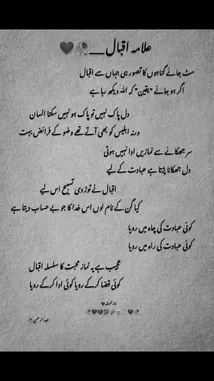 علامہ اقبال__🥀🖤
مٹ جائے گناہوں کا تصور ہی جہاں سے اقبال
اگر ہو جائے "یقین" کہ اللہ دیکھ رہا ہے
دل پاک نہیں تو پاک ہو نہیں سکتا انسان
ورنہ ابلیس کو بھی آتے تھے وضو کے فرائض بہت
سر جھکانے سے نمازیں ادا نہیں ہوتی
دل جھکانا پڑتا ہے عبادت کے لیے
اقبال نے توڑ دی تسبیح اس لیے
کیا گن کے نام لوں اس خدا کا جو بے حساب دیتا ہے
کوئی عبادت کی چاہ میں رویا
کوئی عبادت کی راہ میں رویا
عجیب ہے یہ نماز محبت کا سلسلہ اقبال
کوئی قضا کر کے رویا کوئی ادا کر کے رویا